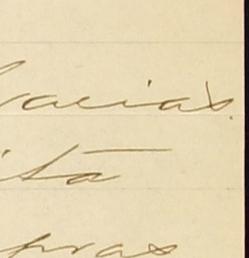 racias.
ita
pras